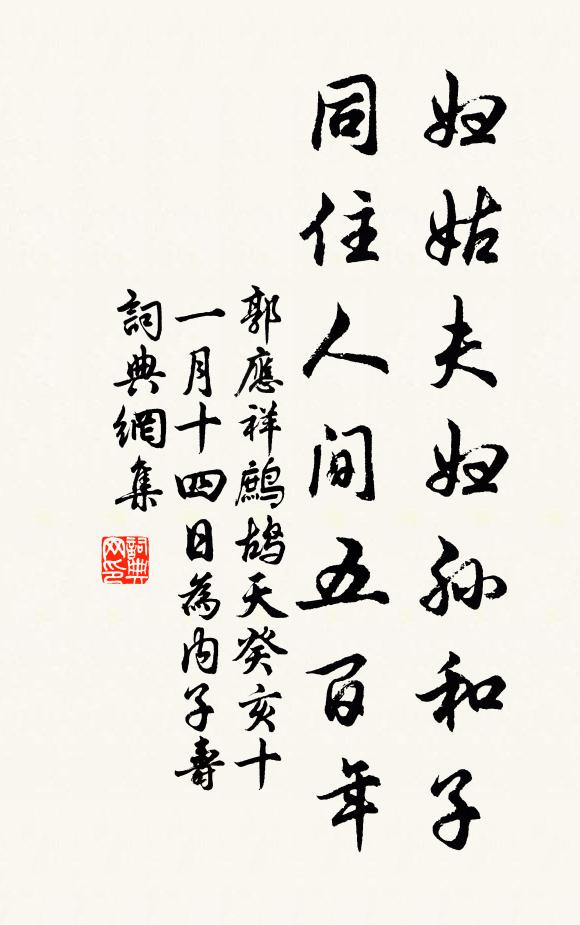 妇姑夫妇孙和子
同住人间五百年
郭應祥鷓鴣天癸亥十
一月十四日為内子壽
詞典網集
詞典
网印